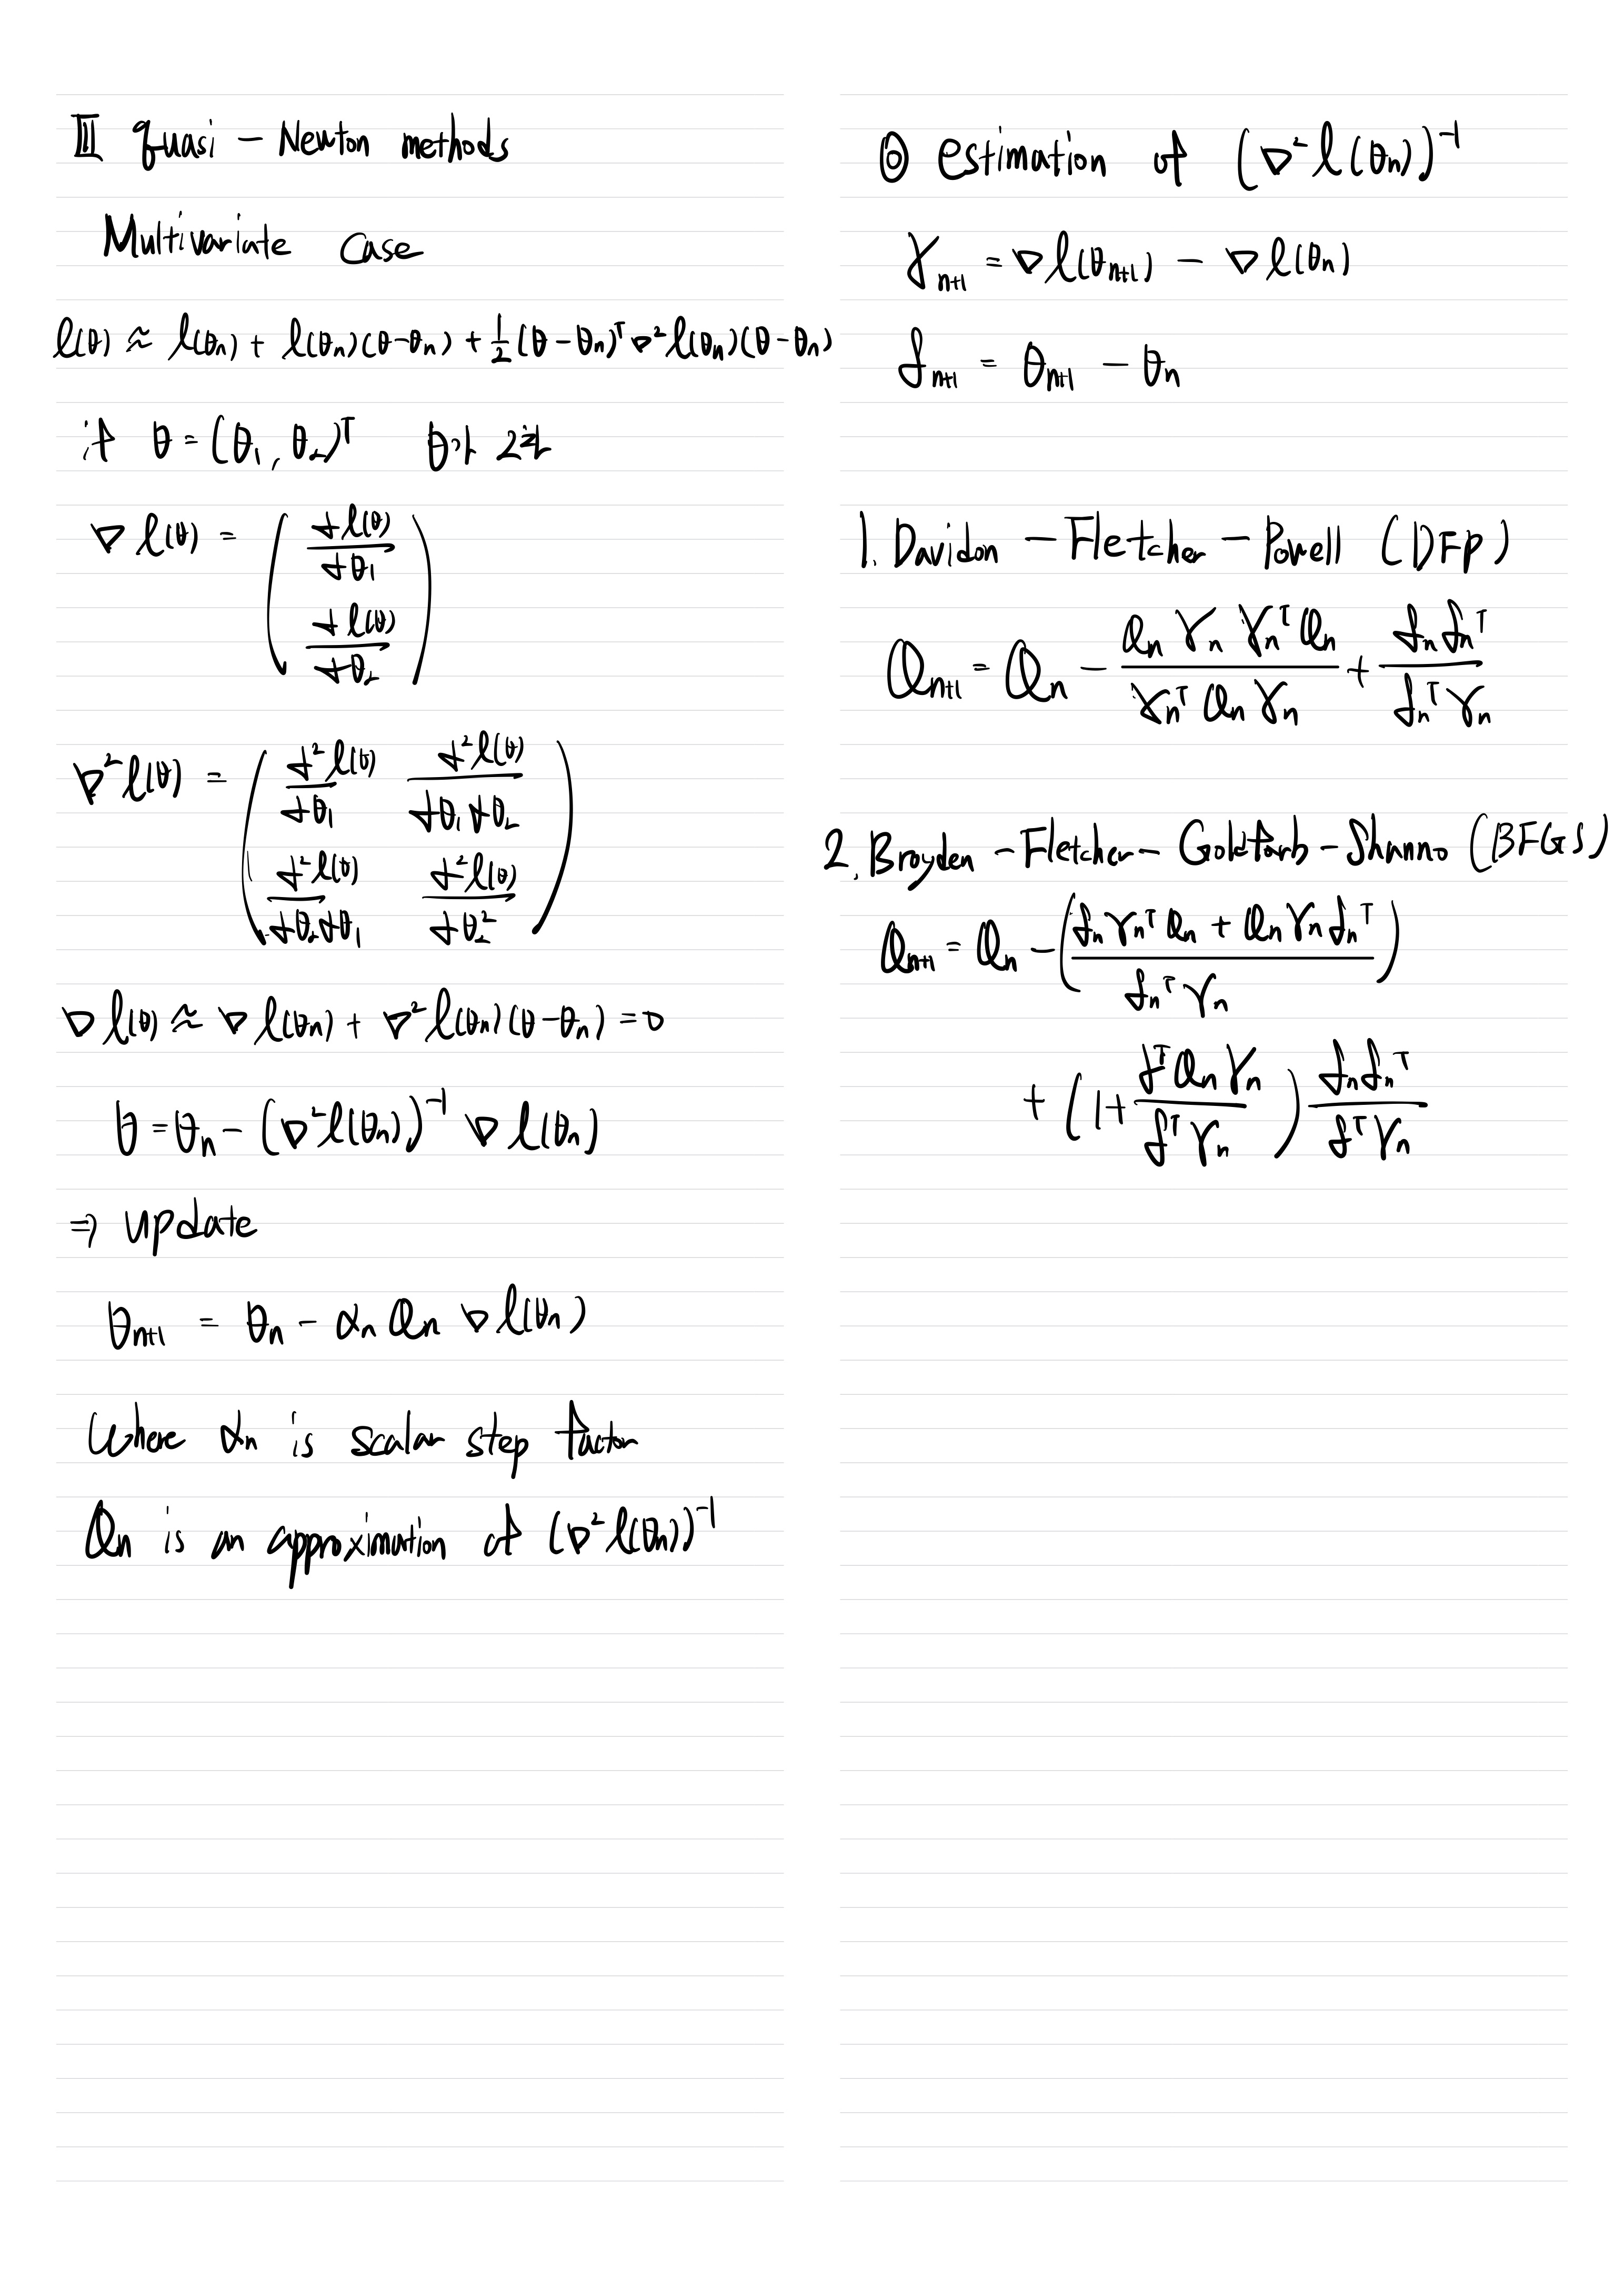 Ⅲ quasi - Newton methods
Multivariate Case
l(θ) ≈ l(θn) + l(θn)(θ-θn) + 1/2 (θ-θn)^T ∇²l(θn)(θ-θn)
if θ = (θ1, θ2)^T θ가 2차
∇ l(θ) = ( dl(θ)/dθ1
dl(θ)/dθ2 )
∇² l(θ) = ( d²l(θ)/dθ1 d²l(θ)/dθ1dθ2
d²l(θ)/dθ2dθ1 d²l(θ)/dθ2² )
∇ l(θ) ≈ ∇ l(θn) + ∇² l(θn)(θ-θn) = 0
θ = θn - (∇²l(θn))^-1 ∇ l(θn)
⇒ update
θn+1 = θn - αn Qn ∇ l(θn)
Where αn is scalar step factor
Qn is an approximation of (∇² l(θn))^-1
◎ estimation of (∇² l(θn))^-1
γn+1 = ∇ l(θn+1) - ∇ l(θn)
δn+1 = θn+1 - θn
1. Davidon - Fletcher - Powell (DFP)
Qn+1 = Qn - (Qn γn γn^T Qn)/(γn^T Qn γn) + (δn δn^T)/(δn^T γn)
2. Broyden - Fletcher - Goldfarb - Shanno (BFGS)
Qn+1 = Qn - ((δn γn^T Qn + Qn γn δn^T)/(δn^T γn))
+ (1 + (δ^T Qn γn)/(δ^T γn)) (δn δn^T)/(δ^T γn)